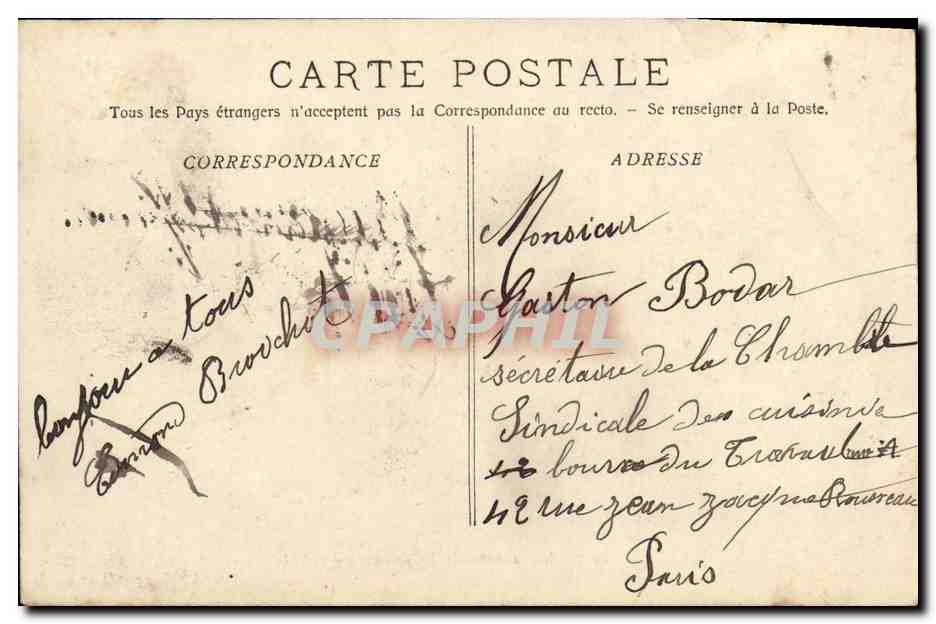 CARTE POSTALE
Tous les Pays étrangers n'acceptent pas la Correspondance au recto. — Se renseigner à la Poste.
CORRESPONDANCE
bonjour a tous
Brouchot
ADRESSE
Monsieur
Gaston Bodar
sécrétaire de la
Sindicale des cuisinie
42 bourse du Travail
42 rue jean Rousseau
Paris
CPAPHIL